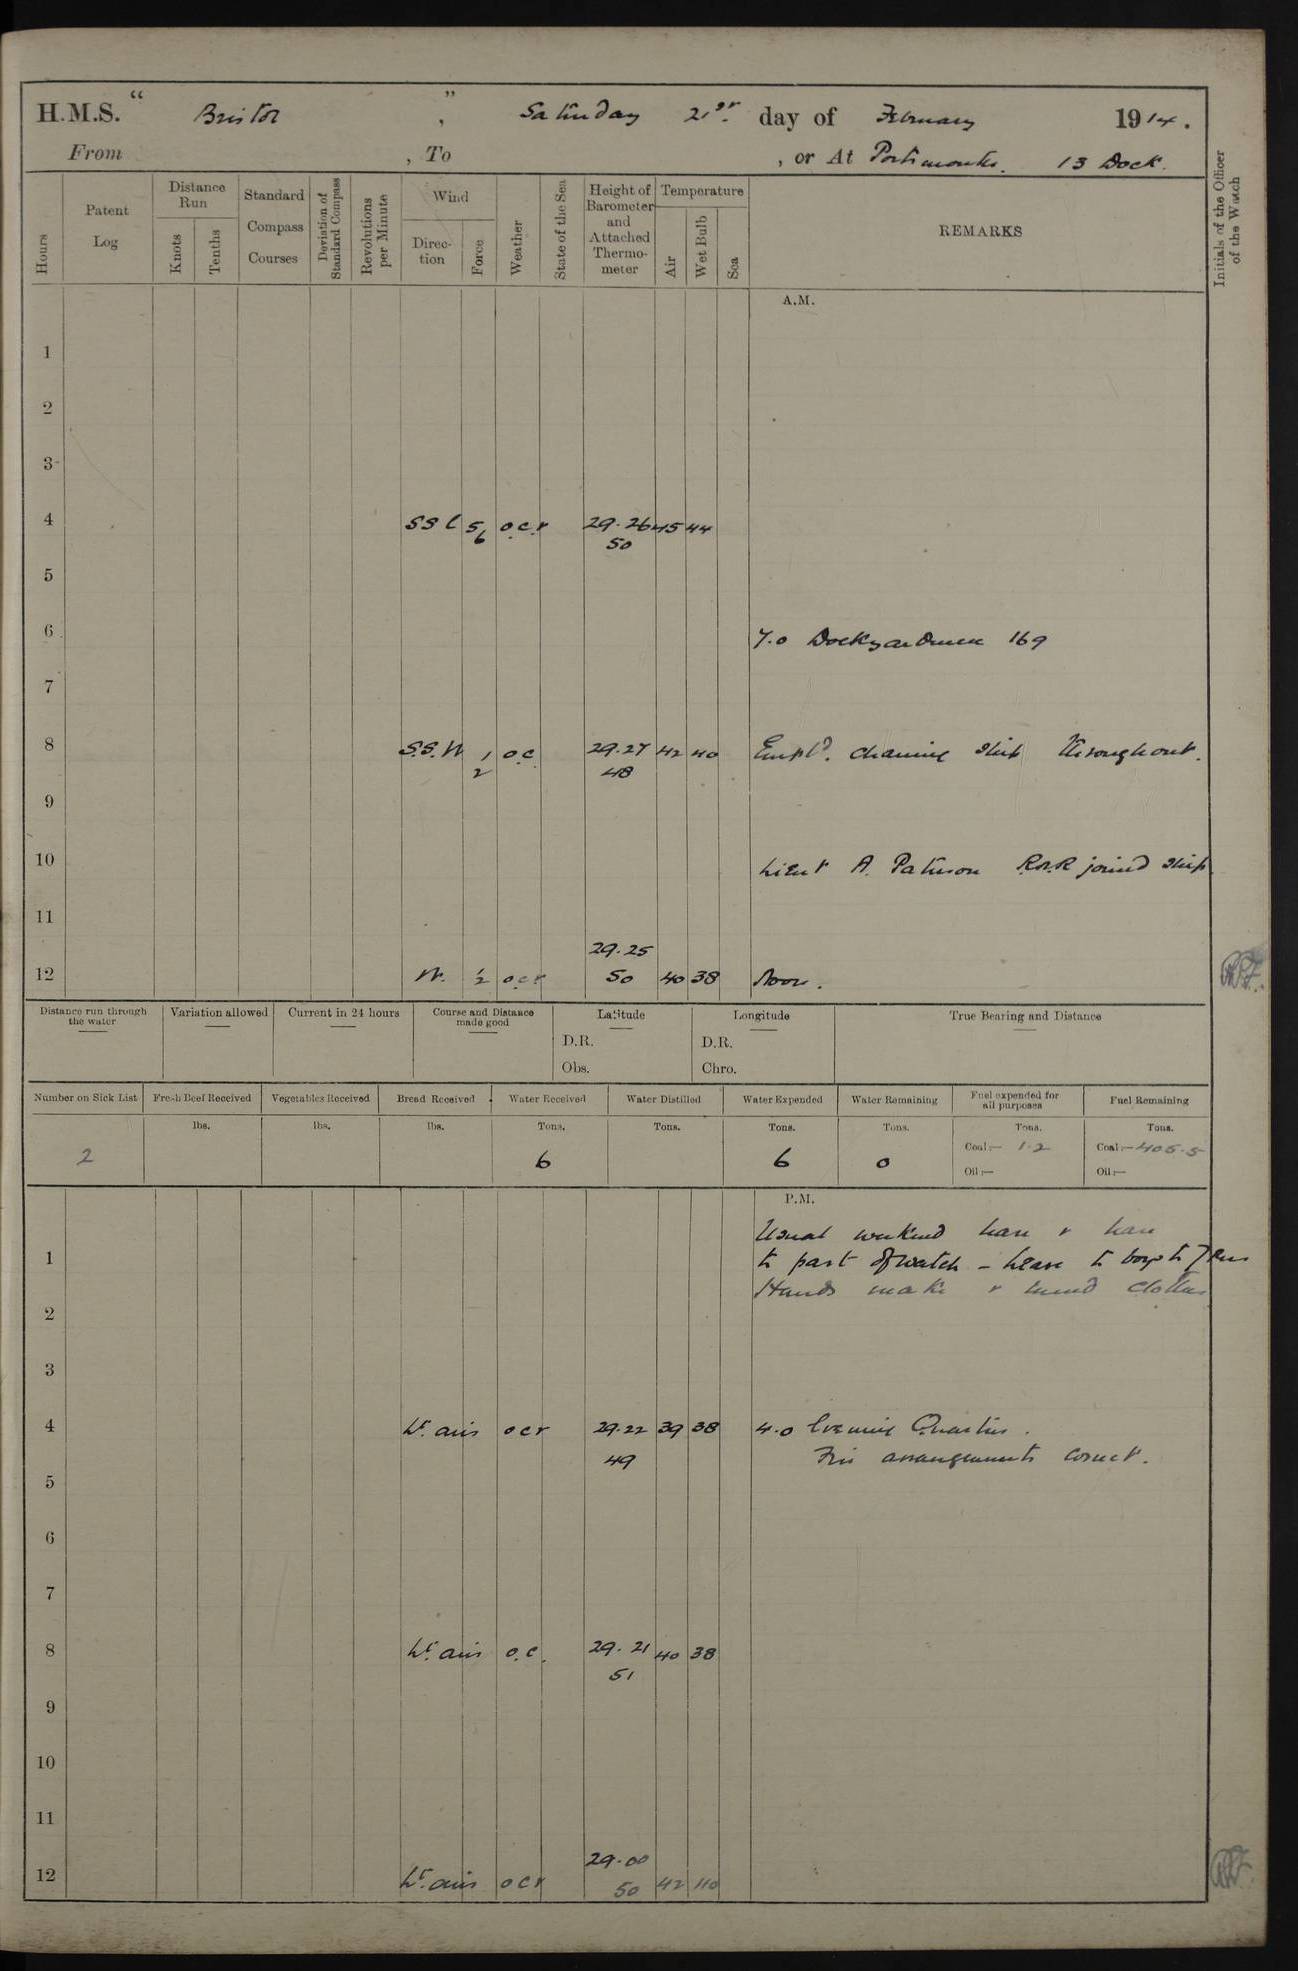 H.M.S. " Bristol ", Saturday 21st. day of February 1914.
From , To , or At Portsmouth. 13 Dock.
Hours
Patent Log
Distance Run
Knots
Tenths
Standard Compass Courses
Deviation of Standard Compass
Revolutions per Minute
Wind
Direction
Force
Weather
State of the Sea
Height of Barometer and Attached Thermometer
Temperature
Air
Wet Bulb
Sea
REMARKS
Initials of the Officer of the Watch
A.M.
1
2
3
4 SSE 5/6 o.c.r 29.26 45 44
50
5
6 7.0 Dockyardmen 169
7
8 S.S.W 1/2 o.c. 29.27 42 40 Empld. cleaning ship throughout.
48
9
10 Lieut A. Paterson R.N.R joined ship.
11
29.25
12 W. 1/2 o.c.r 50 40 38 Noon.
Distance run through the water
Variation allowed
Current in 24 hours
Course and Distance made good
Latitude
D.R.
Obs.
Longitude
D.R.
Chro.
True Bearing and Distance
Number on Sick List
2
Fresh Beef Received
lbs.
Vegetables Received
lbs.
Bread Received
lbs.
Water Received
Tons.
6
Water Distilled
Tons.
Water Expended
Tons.
6
Water Remaining
Tons.
0
Fuel expended for all purposes
Tons.
Coal:— 1.2
Oil:—
Fuel Remaining
Tons.
Coal:— 405.5
Oil:—
P.M.
Usual weekend leave &
1 to part of watch – Leave to boys to 7
Hands make & mend clothes
2
3
4 Lt. airs o c r 29.22 39 38 4.0 Evening Quarters.
49 Fire arrangements correct.
5
6
7
8 Lt. airs o.c. 29.21 40 38
51
9
10
11
29.00
12 Lt. airs o c r 50 42 40